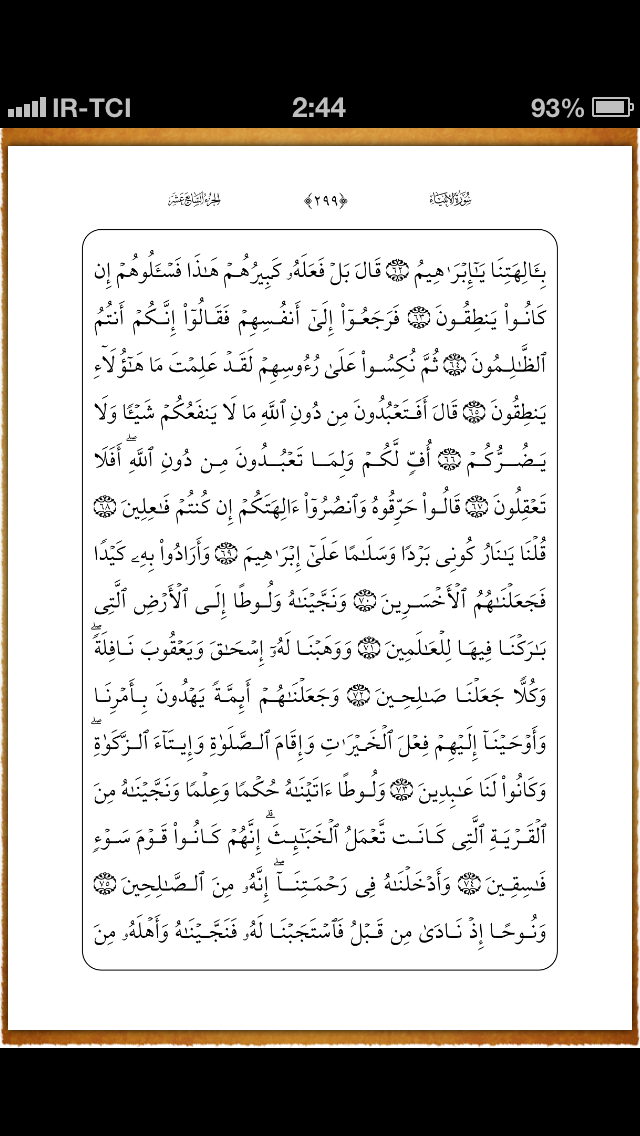 IR-TCI 2:44 93%
سُورَةُ الأَنبِيَاءِ ﴿٢٩٩﴾ الجُزءُ السَّابِعَ عَشَرَ
بِـَٔالِهَتِنَا يَـٰٓإِبۡرَٰهِيمُ ٦٢ قَالَ بَلۡ فَعَلَهُۥ كَبِيرُهُمۡ هَـٰذَا فَسۡـَٔلُوهُمۡ إِن
كَانُواْ يَنطِقُونَ ٦٣ فَرَجَعُوٓاْ إِلَىٰٓ أَنفُسِهِمۡ فَقَالُوٓاْ إِنَّكُمۡ أَنتُمُ
ٱلظَّـٰلِمُونَ ٦٤ ثُمَّ نُكِسُواْ عَلَىٰ رُءُوسِهِمۡ لَقَدۡ عَلِمۡتَ مَا هَـٰٓؤُلَآءِ
يَنطِقُونَ ٦٥ قَالَ أَفَتَعۡبُدُونَ مِن دُونِ ٱللَّهِ مَا لَا يَنفَعُكُمۡ شَيۡـًٔا وَلَا
يَضُرُّكُمۡ ٦٦ أُفٍّ لَّكُمۡ وَلِمَا تَعۡبُدُونَ مِن دُونِ ٱللَّهِۖ أَفَلَا
تَعۡقِلُونَ ٦٧ قَالُواْ حَرِّقُوهُ وَٱنصُرُوٓاْ ءَالِهَتَكُمۡ إِن كُنتُمۡ فَـٰعِلِينَ ٦٨
قُلۡنَا يَـٰنَارُ كُونِى بَرۡدًا وَسَلَـٰمًا عَلَىٰٓ إِبۡرَٰهِيمَ ٦٩ وَأَرَادُواْ بِهِۦ كَيۡدًا
فَجَعَلۡنَـٰهُمُ ٱلۡأَخۡسَرِينَ ٧٠ وَنَجَّيۡنَـٰهُ وَلُوطًا إِلَى ٱلۡأَرۡضِ ٱلَّتِى
بَـٰرَكۡنَا فِيهَا لِلۡعَـٰلَمِينَ ٧١ وَوَهَبۡنَا لَهُۥٓ إِسۡحَـٰقَ وَيَعۡقُوبَ نَافِلَةًۖ
وَكُلًّا جَعَلۡنَا صَـٰلِحِينَ ٧٢ وَجَعَلۡنَـٰهُمۡ أَئِمَّةً يَهۡدُونَ بِأَمۡرِنَا
وَأَوۡحَيۡنَآ إِلَيۡهِمۡ فِعۡلَ ٱلۡخَيۡرَٰتِ وَإِقَامَ ٱلصَّلَوٰةِ وَإِيتَآءَ ٱلزَّكَوٰةِۖ
وَكَانُواْ لَنَا عَـٰبِدِينَ ٧٣ وَلُوطًا ءَاتَيۡنَـٰهُ حُكۡمًا وَعِلۡمًا وَنَجَّيۡنَـٰهُ مِنَ
ٱلۡقَرۡيَةِ ٱلَّتِى كَانَت تَّعۡمَلُ ٱلۡخَبَـٰٓئِثَۗ إِنَّهُمۡ كَانُواْ قَوۡمَ سَوۡءٍ
فَـٰسِقِينَ ٧٤ وَأَدۡخَلۡنَـٰهُ فِى رَحۡمَتِنَآۖ إِنَّهُۥ مِنَ ٱلصَّـٰلِحِينَ ٧٥
وَنُوحًا إِذۡ نَادَىٰ مِن قَبۡلُ فَٱسۡتَجَبۡنَا لَهُۥ فَنَجَّيۡنَـٰهُ وَأَهۡلَهُۥ مِنَ